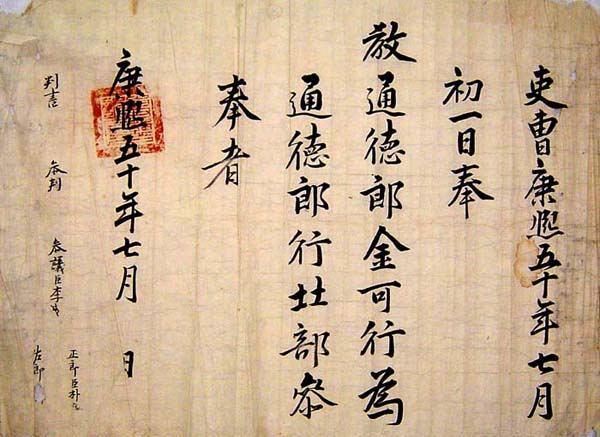 吏曹康熙五十年七月
初一日奉
教通徳郎金可行為
通徳郎行北部叅
奉者
康熙五十年七月 日
判書
叅判
叅議臣李
正郎臣朴
佐郎